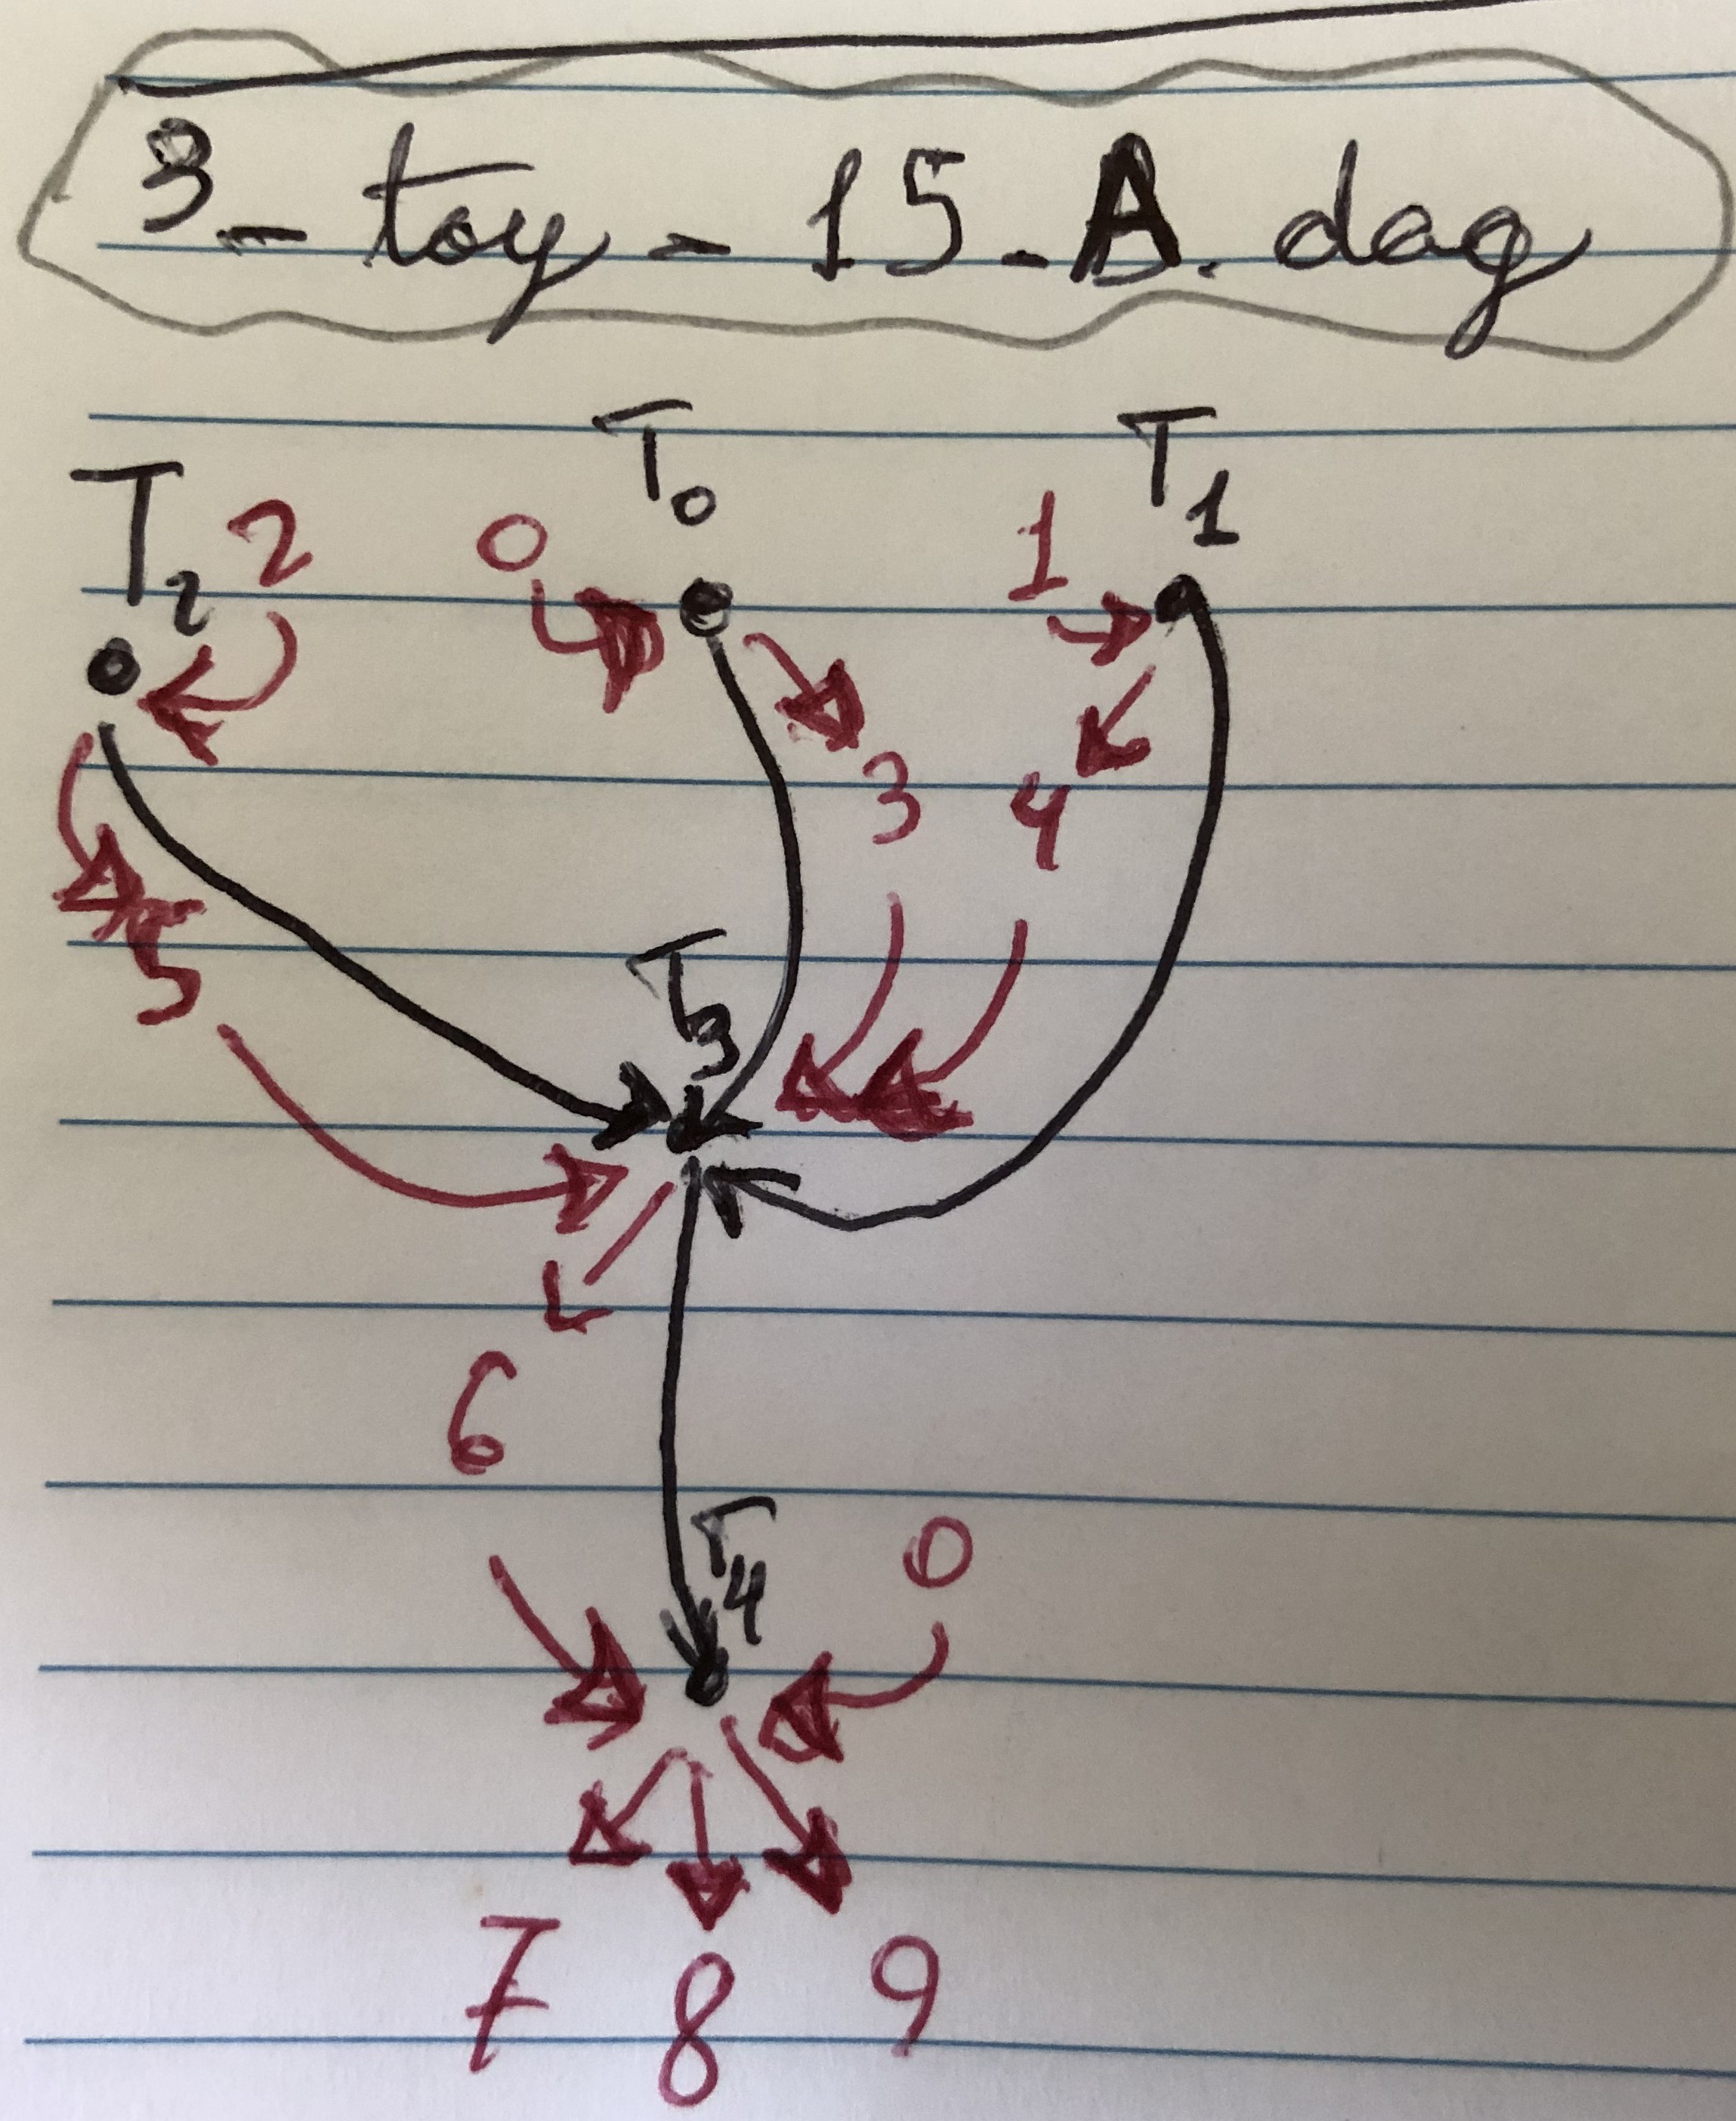 3_toy-15-A.dag
T0 T1
T2 2 0 1
3 4
5
T3
6
T4 0
7 8 9